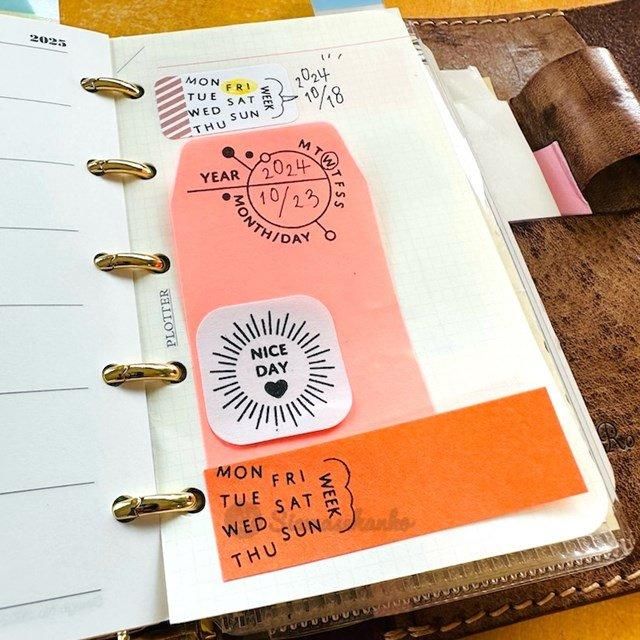 2025
MON FRI
TUE SAT
WED SUN
THU
WEEK
2024
10/18
YEAR 2024
10/23
MONTH/DAY
M T W T F S S
PLOTTER
NICE
DAY
MON FRI
TUE SAT
WED SUN
THU
WEEK